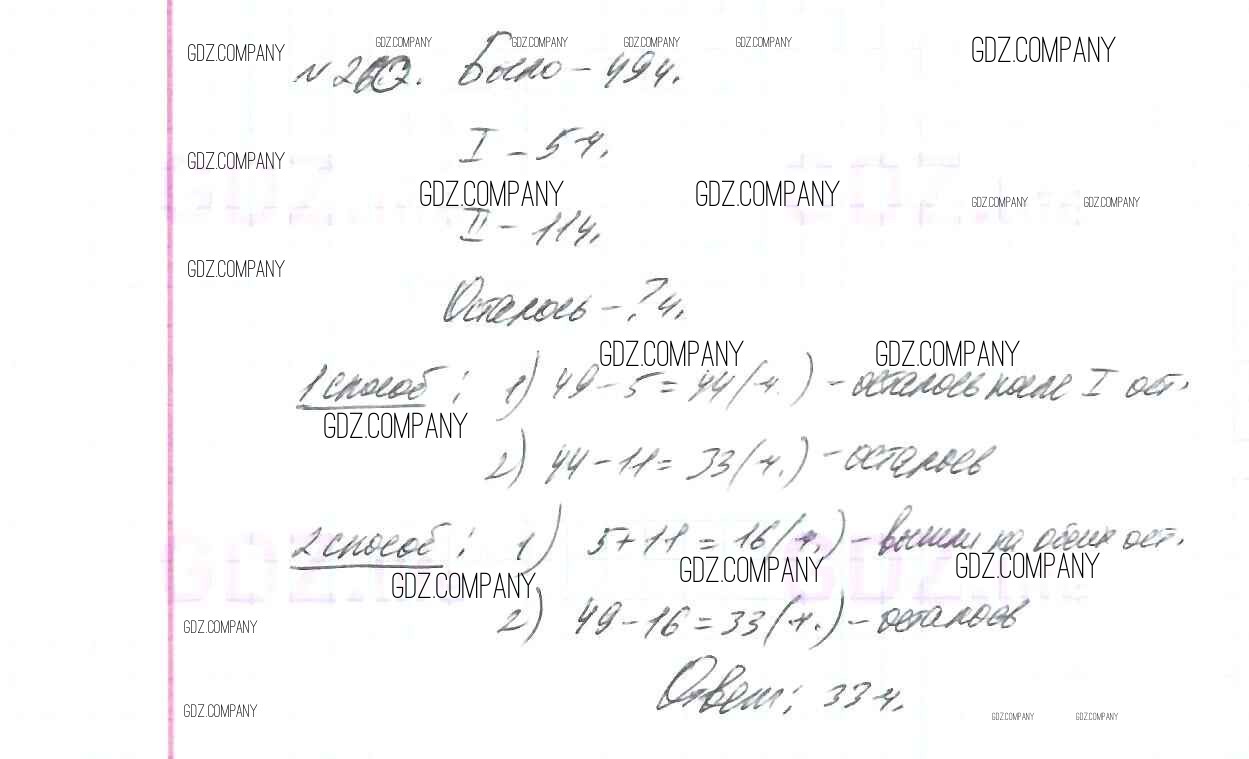 GDZ.COMPANY GDZ.COMPANY GDZ.COMPANY GDZ.COMPANY GDZ.COMPANY GDZ.COMPANY
Было – 49 ч.
GDZ.COMPANY I – 5 ч.
GDZ.COMPANY GDZ.COMPANY GDZ.COMPANY GDZ.COMPANY
II – 11 ч.
GDZ.COMPANY
Осталось – ? ч.
GDZ.COMPANY GDZ.COMPANY
1 способ: 1) 49 – 5 = 44 (ч.) – осталось после I ост.
GDZ.COMPANY
2) 44 – 11 = 33 (ч.) – осталось
2 способ: 1) 5 + 11 = 16 (ч.) – вышли на обеих ост.
GDZ.COMPANY GDZ.COMPANY GDZ.COMPANY
2) 49 – 16 = 33 (ч.) – осталось
GDZ.COMPANY
Ответ: 33 ч.
GDZ.COMPANY GDZ.COMPANY GDZ.COMPANY